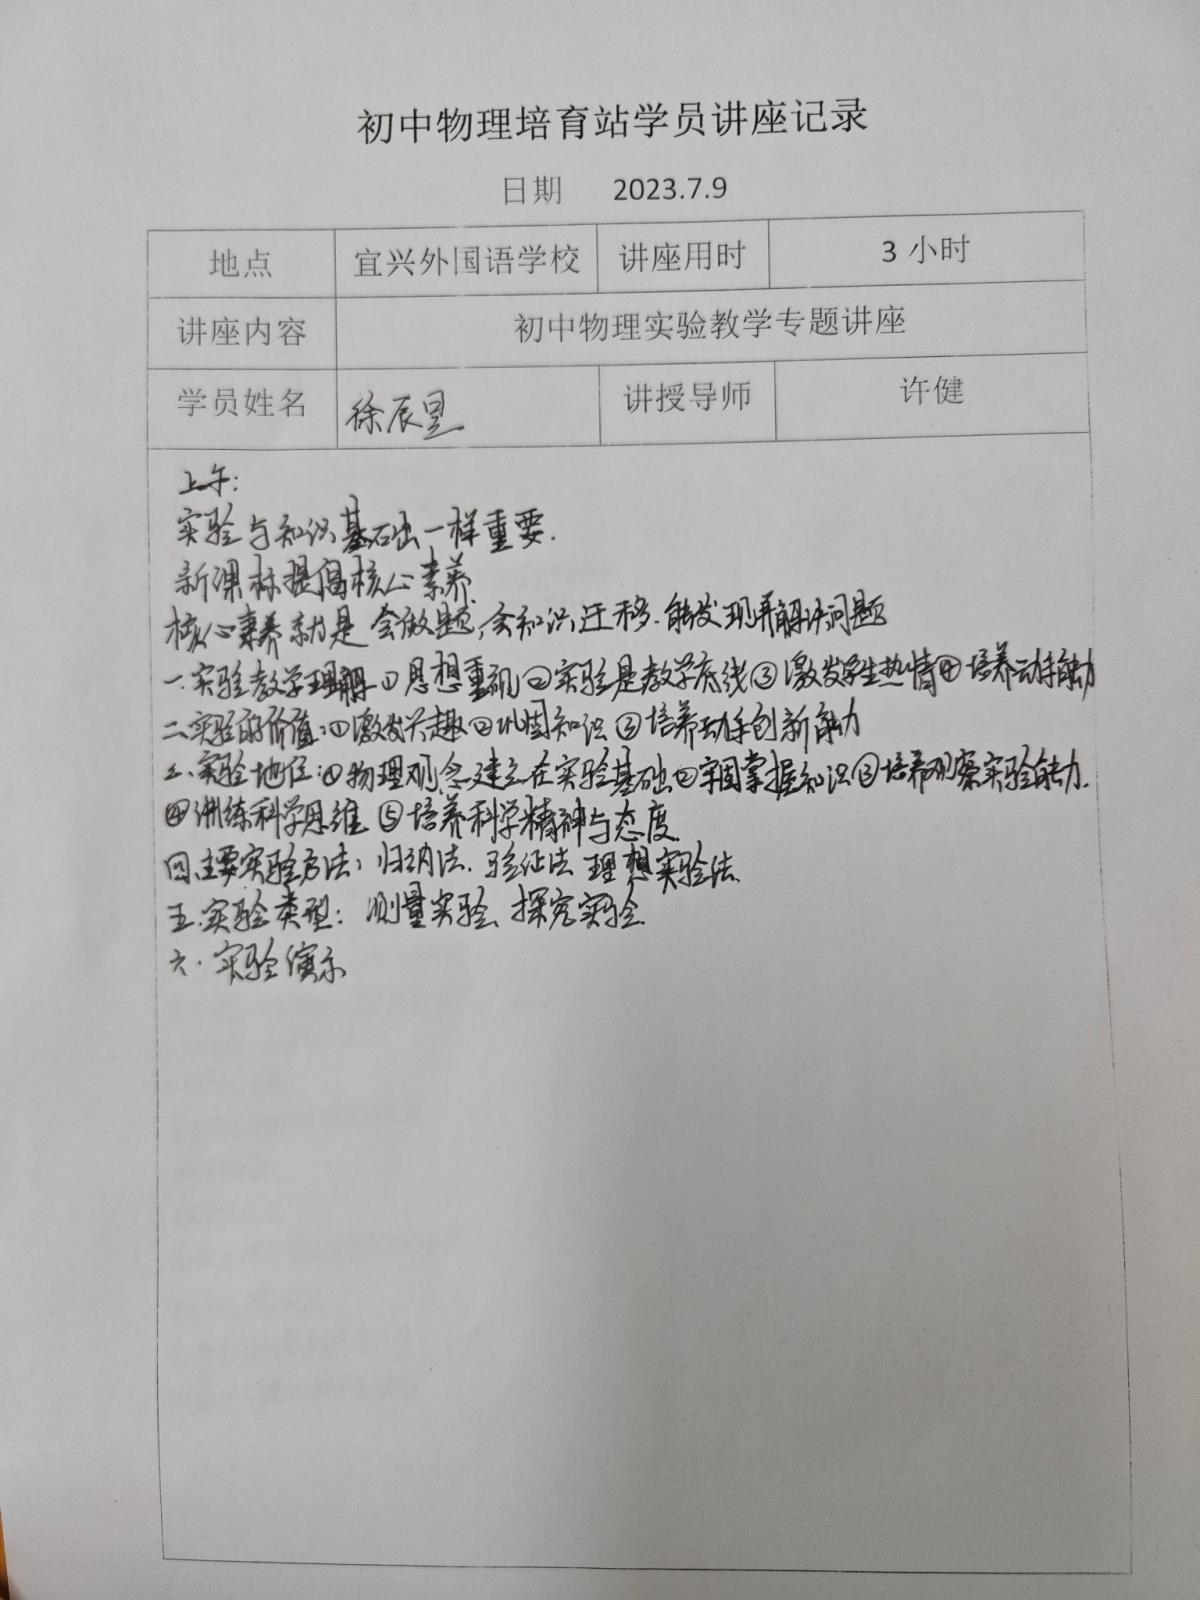 初中物理培育站学员讲座记录
日期 2023.7.9
地点 宜兴外国语学校 讲座用时 3 小时
讲座内容 初中物理实验教学专题讲座
学员姓名 徐辰昱 讲授导师 许健
上午:
实验与知识基础一样重要.
新课标提倡核心素养.
核心素养就是会做题,会知识迁移.能发现并解决问题
一.实验教学理解①思想重视②实验是教学底线③激发学生热情④培养动手能力
二.实验的价值:①激发兴趣②巩固知识③培养动手创新能力
三.实验地位:①物理观念建立在实验基础②牢固掌握知识③培养观察实验能力.
④训练科学思维⑤培养科学精神与态度
四.主要实验方法:归纳法.验证法 理想实验法.
五.实验类型:测量实验、探究实验.
六.实验演示